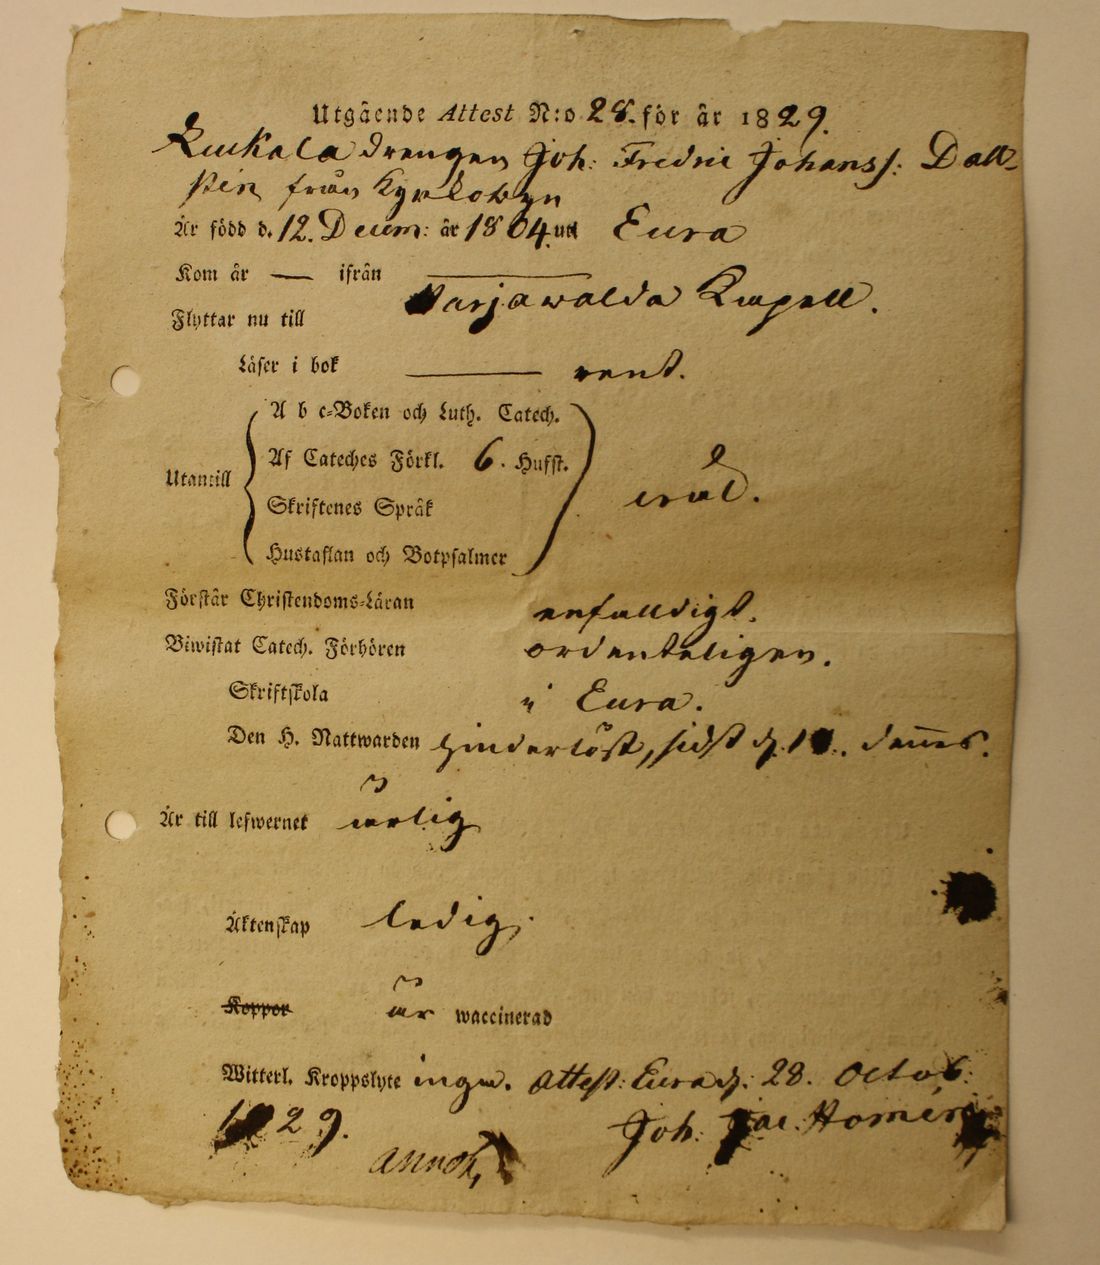 Utgående Attest N:o 28. för år 1829.
Kuckala drengen Joh: Fredric Johanss: Dall-
stén från Kyrkobyn
Är född d. 12. Decem: år 1804. uti Eura
Kom år — ifrån —
Flyttar nu till Karjawalda Capell.
Läser i bok — rent.
Utantill
A b c-Boken och Luth. Catech.
Af Cateches Förkl. 6. Hufst.
Skriftenes Språk
Hustaflan och Botpsalmer
wäl.
Förstår Christendoms-Läran enfalldigt.
Biwistat Catech. Förhören ordenteligen.
Skriftskola i Eura.
Den H. Nattwarden hinderlöst, sidst d. dennes.
Är till lefwernet ärlig
Äktenskap ledig.
Koppor är waccinerad
Witterl. Kroppslyte inga. Attest: Eura d. 28. Octob:
1829. Joh: Jac. Homén